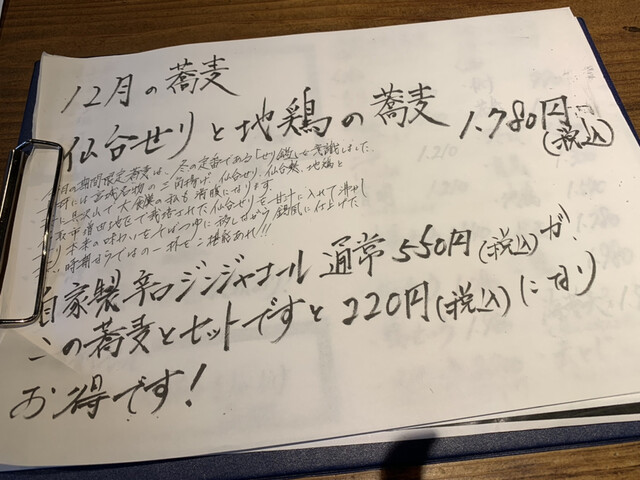 12月の蕎麦
仙台せりと地鶏の蕎麦 1.780円(税込)
の期間限定蕎麦は、冬の定番である「せり鍋」を意識しました。
には宮城名物の三角揚げ、仙台せり、仙台葱、地鶏と
に具沢山で大食漢の私も満腹になります。
取市増田地区で栽培された仙台せりを甘汁に入れて沸かし
せり本来の味わいをそばつゆに移しながら鍋風に仕上げた
時期ならではの一杯をご堪能あれ!!!
自家製辛口ジンジャエール 通常550円(税込)が、
この蕎麦とセットですと220円(税込)になり
お得です!